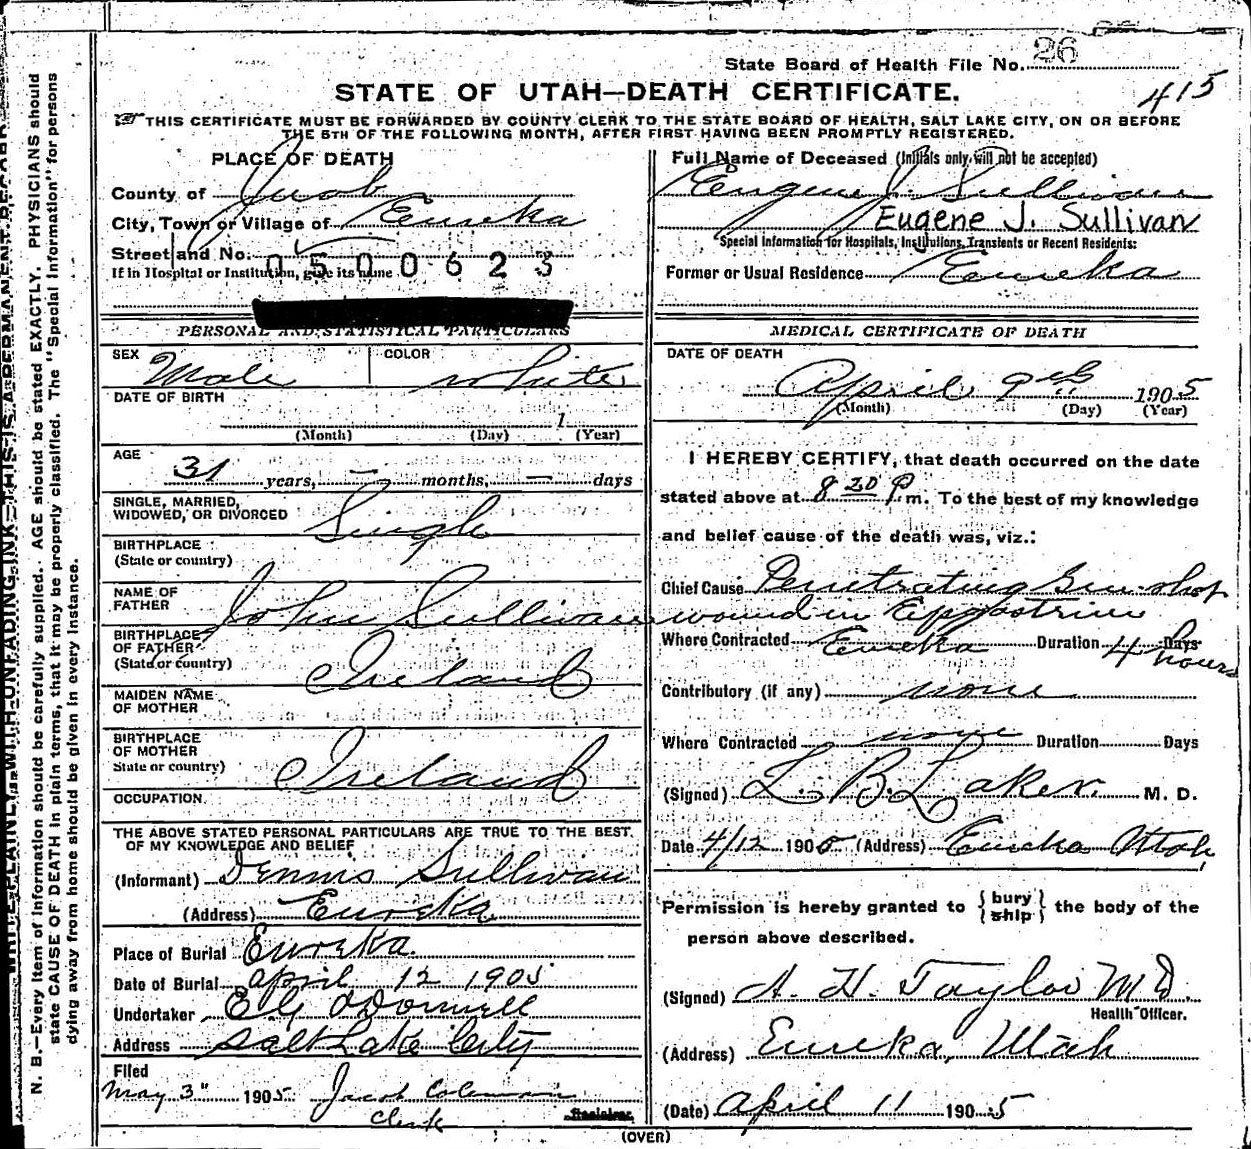 State Board of Health File No. 26
415
STATE OF UTAH—DEATH CERTIFICATE.
THIS CERTIFICATE MUST BE FORWARDED BY COUNTY CLERK TO THE STATE BOARD OF HEALTH, SALT LAKE CITY, ON OR BEFORE
THE 5TH OF THE FOLLOWING MONTH, AFTER FIRST HAVING BEEN PROMPTLY REGISTERED.
PLACE OF DEATH
County of Juab
City, Town or Village of Eureka
Street and No.
If in Hospital or Institution, give its name
0500623
Full Name of Deceased (Initials only will not be accepted)
Eugene J. Sullivan
Eugene J. Sullivan
Special Information for Hospitals, Institutions, Transients or Recent Residents:
Former or Usual Residence Eureka
PERSONAL AND STATISTICAL PARTICULARS
SEX Male COLOR White
DATE OF BIRTH
1
(Month) (Day) (Year)
AGE
31 years, — months, — days
SINGLE, MARRIED,
WIDOWED, OR DIVORCED Single
BIRTHPLACE
(State or country)
NAME OF
FATHER John Sullivan
BIRTHPLACE
OF FATHER
(State or country) Ireland
MAIDEN NAME
OF MOTHER
BIRTHPLACE
OF MOTHER
State or country) Ireland
OCCUPATION
THE ABOVE STATED PERSONAL PARTICULARS ARE TRUE TO THE BEST
OF MY KNOWLEDGE AND BELIEF
(Informant) Dennis Sullivan
(Address) Eureka
Place of Burial Eureka.
Date of Burial april 12 1905
Undertaker E G O'Donnell
Address Salt Lake City
Filed
May 3" 1905 Jacob Coleman
Clerk Registrar
MEDICAL CERTIFICATE OF DEATH
DATE OF DEATH
April 9th 1905
(Month) (Day) (Year)
I HEREBY CERTIFY, that death occurred on the date
stated above at 8 30 P. m. To the best of my knowledge
and belief cause of the death was, viz.:
Chief Cause Penetrating Gun-shot
wound in Epigastrium
Where Contracted Eureka Duration 4 Days
hours
Contributory (if any) none
Where Contracted none Duration Days
(Signed) L. B. Laker. M. D.
Date 4/12 1905 (Address) Eureka Utah,
Permission is hereby granted to { bury
ship } the body of the
person above described.
(Signed) A. H. Taylor M D.
Health Officer.
(Address) Eureka, Utah
(Date) april 11 1905
(OVER)
WRITE PLAINLY WITH UNFADING INK—THIS IS A PERMANENT RECORD
N. B.—Every item of information should be carefully supplied. AGE should be stated EXACTLY. PHYSICIANS should
state CAUSE OF DEATH in plain terms, that it may be properly classified. The "Special Information" for persons
dying away from home should be given in every instance.